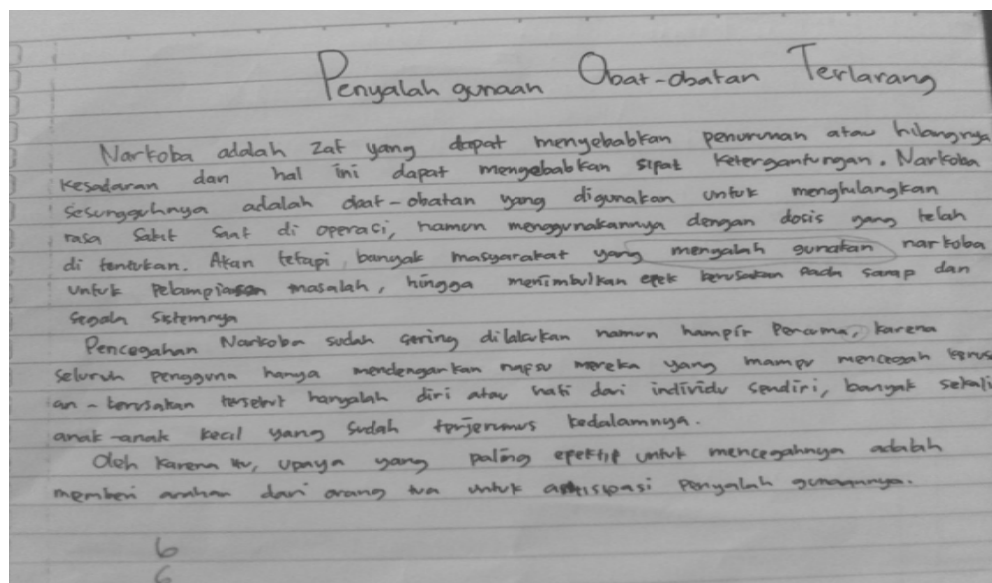 Penyalah gunaan Obat-obatan Terlarang
Narkoba adalah zat yang dapat menyebabkan penurunan atau hilangnya
kesadaran dan hal ini dapat mengebabkan sipat ketergantungan. Narkoba
sesungguhnya adalah obat-obatan yang digunakan untuk menghilangkan
rasa sakit saat di operasi, namun menggunakannya dengan dosis yang telah
di tentukan. Akan tetapi banyak masyarakat yang mengalah gunakan narkoba
untuk pelampiasan masalah, hingga menimbulkan epek kerusakan pada sarap dan
segala sistemnya
Pencegahan Narkoba sudah sering dilakukan namun hampir Percuma, karena
seluruh pengguna hanya mendengarkan napsu mereka yang mampu mencegah kerus
an-kerusakan tersebut hanyalah diri atau hati dari individu sendiri, banyak sekali
anak-anak kecil yang sudah terjerumus kedalamnya.
Oleh karena itu, upaya yang paling epektip untuk mencegahnya adalah
memberi arahan dari orang tua untuk antisipasi penyalah gunaannya.
6
6